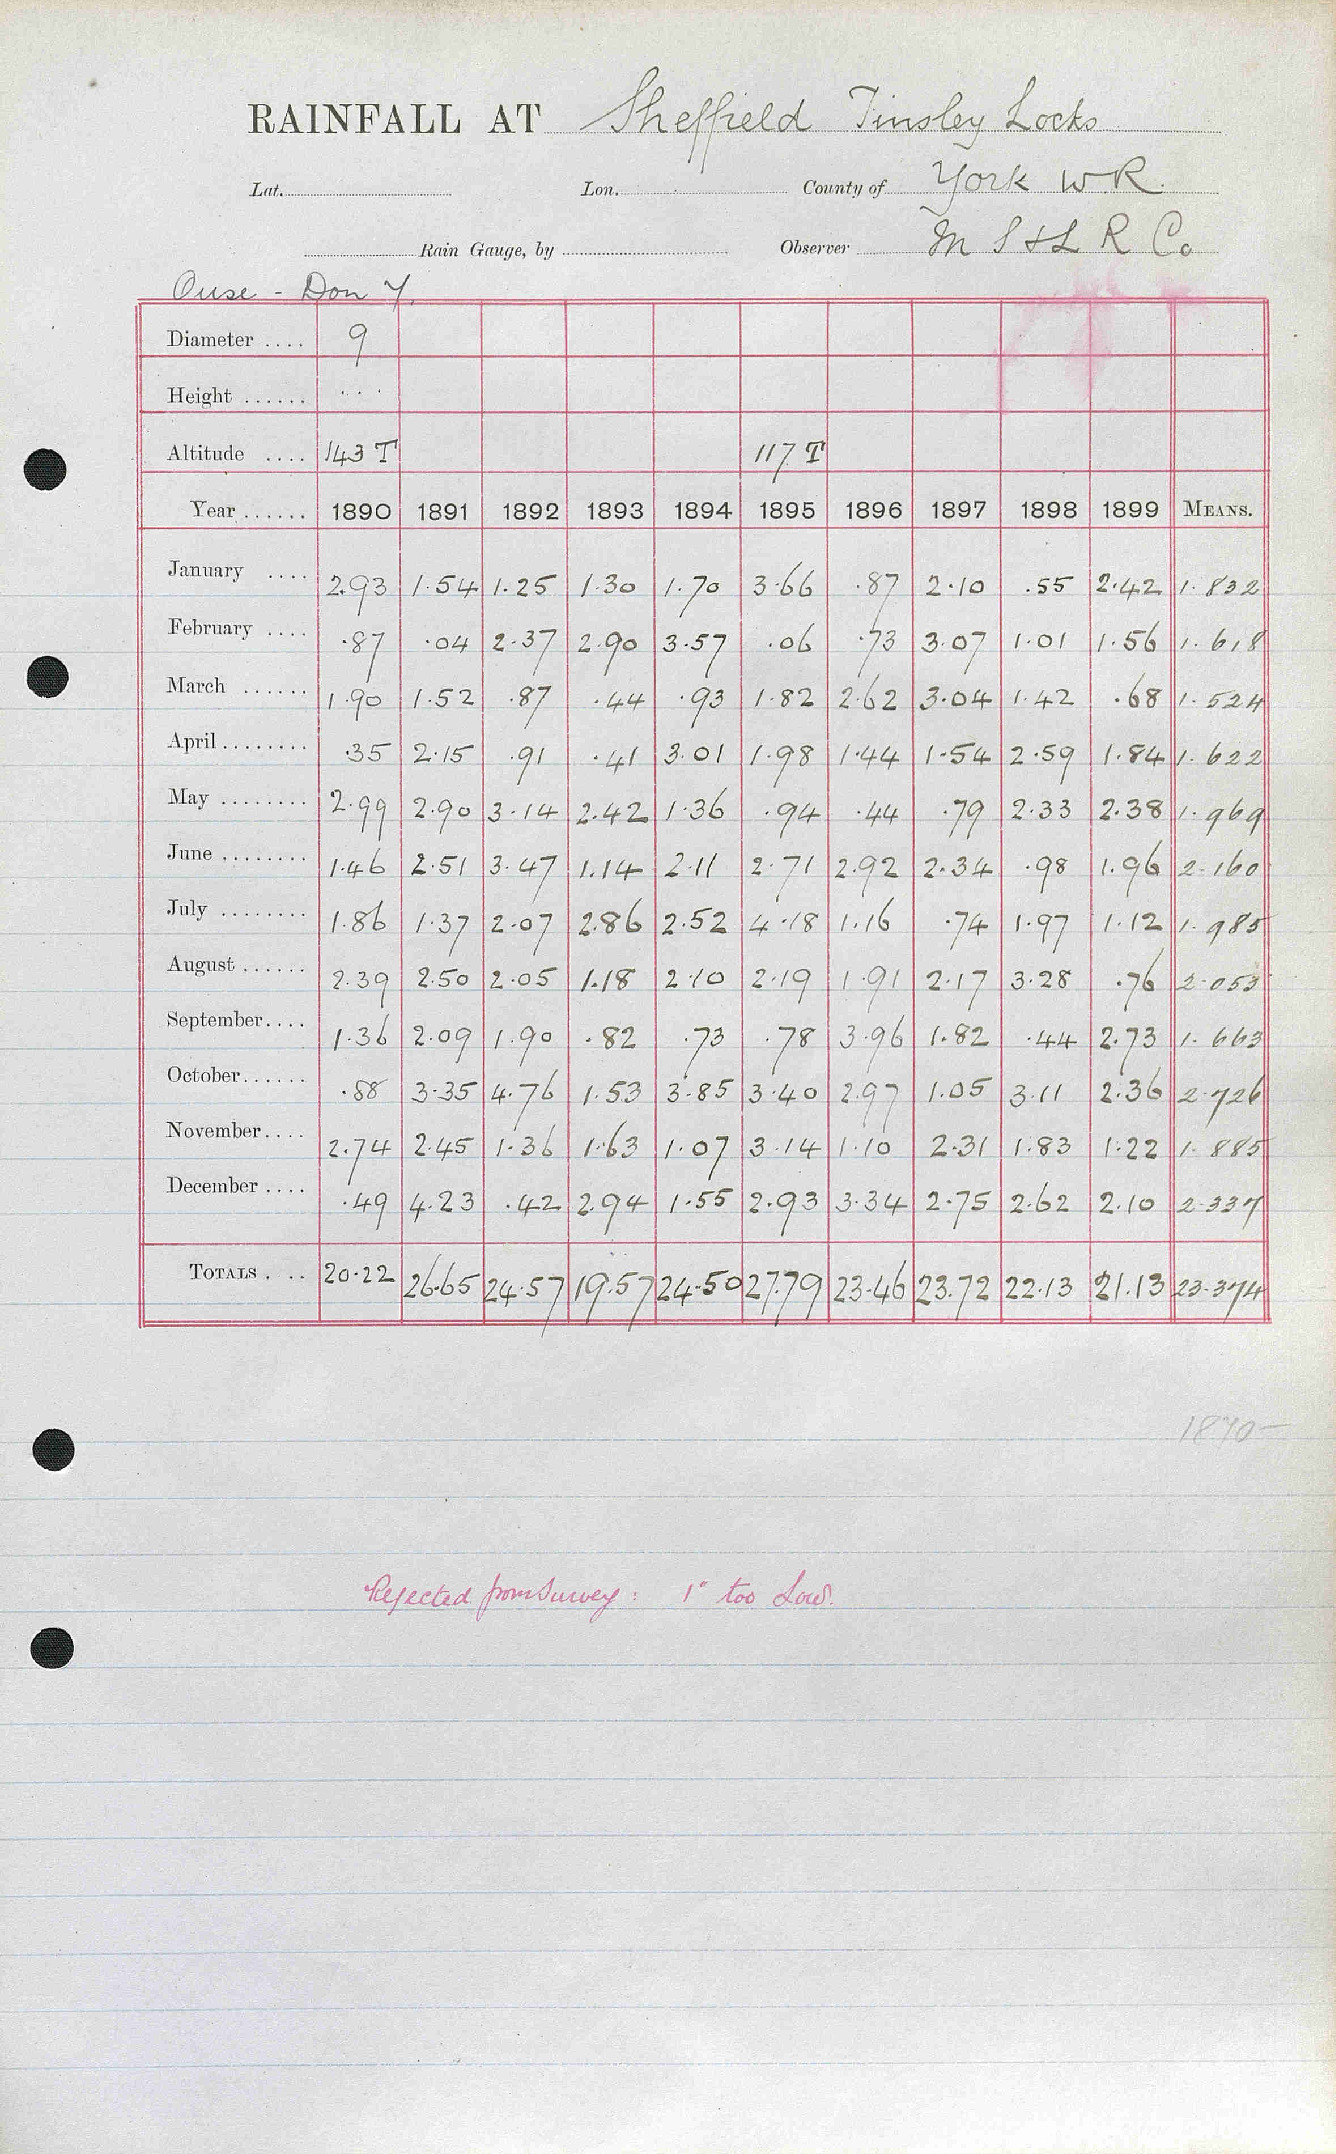 RAINFALL AT Sheffield Tinsley Locks
Lat. Lon. County of York W R.
Rain Gauge, by Observer M S & L R Co
Ouse - Don Y.
Diameter .... 9
Height ...... . . .
Altitude .... 143 T 117 T
Year ...... 1890 1891 1892 1893 1894 1895 1896 1897 1898 1899 MEANS.
January .... 2.93 1.54 1.25 1.30 1.70 3.66 .87 2.10 .55 2.42 1.832
February .... .87 .04 2.37 2.90 3.57 .06 .73 3.07 1.01 1.56 1.618
March ...... 1.90 1.52 .87 .44 .93 1.82 2.62 3.04 1.42 .68 1.524
April ........ .35 2.15 .91 .41 3.01 1.98 1.44 1.54 2.59 1.84 1.622
May ........ 2.99 2.90 3.14 2.42 1.36 .94 .44 .79 2.33 2.38 1.969
June ........ 1.46 2.51 3.47 1.14 2.11 2.71 2.92 2.34 .98 1.96 2.160
July ........ 1.86 1.37 2.07 2.86 2.52 4.18 1.16 .74 1.97 1.12 1.985
August ...... 2.39 2.50 2.05 1.18 2.10 2.19 1.91 2.17 3.28 .76 2.053
September.... 1.36 2.09 1.90 .82 .73 .78 3.96 1.82 .44 2.73 1.663
October...... .88 3.35 4.76 1.53 3.85 3.40 2.97 1.05 3.11 2.36 2.726
November.... 2.74 2.45 1.36 1.63 1.07 3.14 1.10 2.31 1.83 1.22 1.885
December .... .49 4.23 .42 2.94 1.55 2.93 3.34 2.75 2.62 2.10 2.337
TOTALS . .. 20.22 26.65 24.57 19.57 24.50 27.79 23.46 23.72 22.13 21.13 23.374
1870-
Rejected from Survey: 1" too Low.